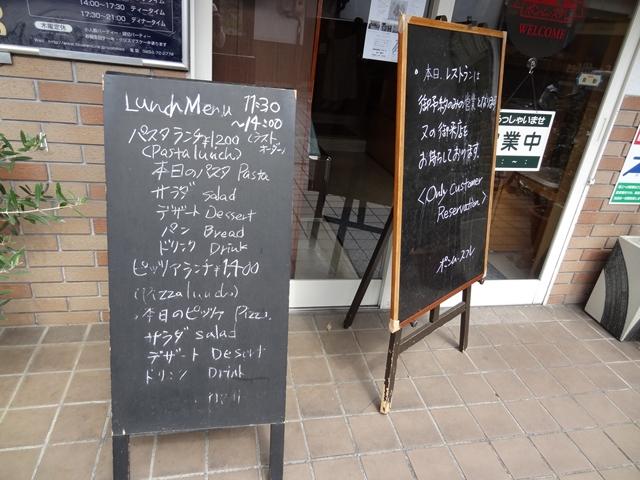 14:00~17:30 ティータイム
17:30~21:00 ディナータイム
木曜定休
WELCOME
いらっしゃいませ
営業中
Lunch Menu 11:30
~14:00
パスタランチ ¥1200 (ラスト
オーダー)
(Pasta lunch)
本日のパスタ Pasta
サラダ salad
デザート Dessert
パン Bread
ドリンク Drink
ピッツァランチ ¥1400
(Pizza lunch)
本日のピッツァ Pizza
サラダ salad
デザート Desert
ドリンク Drink
本日、レストランは
御予約のみの営業となります
又の御来店を
お待ちしております。
<Only Customer
Reservation>